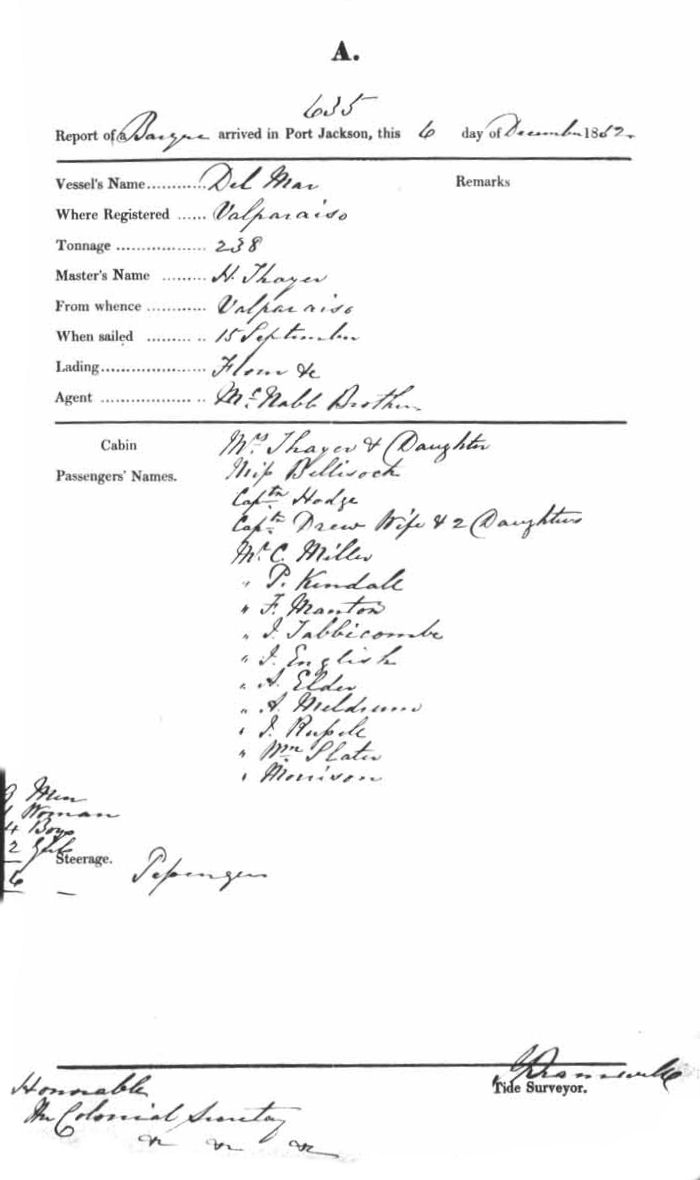 A.
635
Report of a Barque arrived in Port Jackson, this 6 day of December 1852.
Vessel's Name........... Del Mar Remarks
Where Registered ...... Valparaiso
Tonnage .................. 238
Master's Name ......... H. Thayer
From whence ............ Valparaiso
When sailed ......... .. 15 September
Lading..................... Flour &c
Agent .................. .. McNabb Brothers
Cabin Mrs Thayer & Daughter
Passengers' Names. Miss Bellisock
Captn Hodge
Captn Drew Wife & 2 Daughters
Mr C. Miller
" P. Kendall
" F. Manton
" J. Tabbicombe
" J. English
" A. Elder
" A. Meldrum
" J. Russell
" Wm Slater
" Morrison
9 Men
1 Woman
4 Boys
2 Girls
Steerage. Passengers
6
Tide Surveyor.
Honorable
The Colonial Secretary